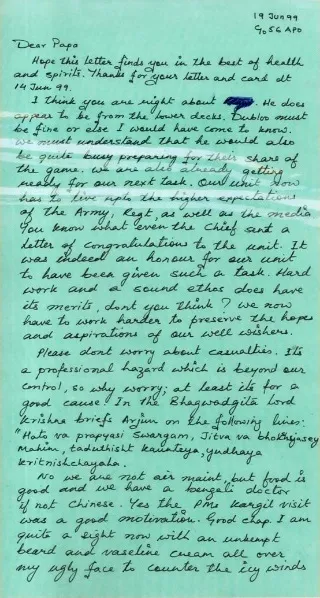 19 Jun 99
C/o 56 APO
Dear Papa
Hope this letter finds you in the best of health
and spirits. Thanks for your letter and card dt
14 Jun 99.
I think you are right about. He does
appear to be from the lower decks. must
be fine or else I would have come to know.
We must understand that he would also
be quite busy preparing for their share of
the game. We are also already getting
ready for our next task. Our unit now
has to live upto the higher expectations
of the Army, Regt, as well as the media
You know what even the Chief sent a
letter of congratulations to the unit. It
was indeed an honour for our unit
to have been given such a task. Hard
work and a sound ethos does have
its merits, dont you think? We now
have to work harder to preserve the hopes
and aspirations of our well wishers.
Please dont worry about casualties. Its
a professional hazard which is beyond our
control, so why worry; at least its for a
good cause. In the Bhagwadgita Lord
Krishna briefs Arjun on the following lines:
"Hato va prapyasi Swargam, Jitva va bhokshyasey
Mahim, taduthisht Kaunteya, yudhaya
kritnishchayaha.
No we are not air maint, but food is
good and we have a bengali doctor
if not Chinese. Yes the PMs Kargil visit
was a good motivation. Good chap. I am
quite a sight now with an unkempt
beard and vaseline cream all over
my ugly face to counter the icy winds